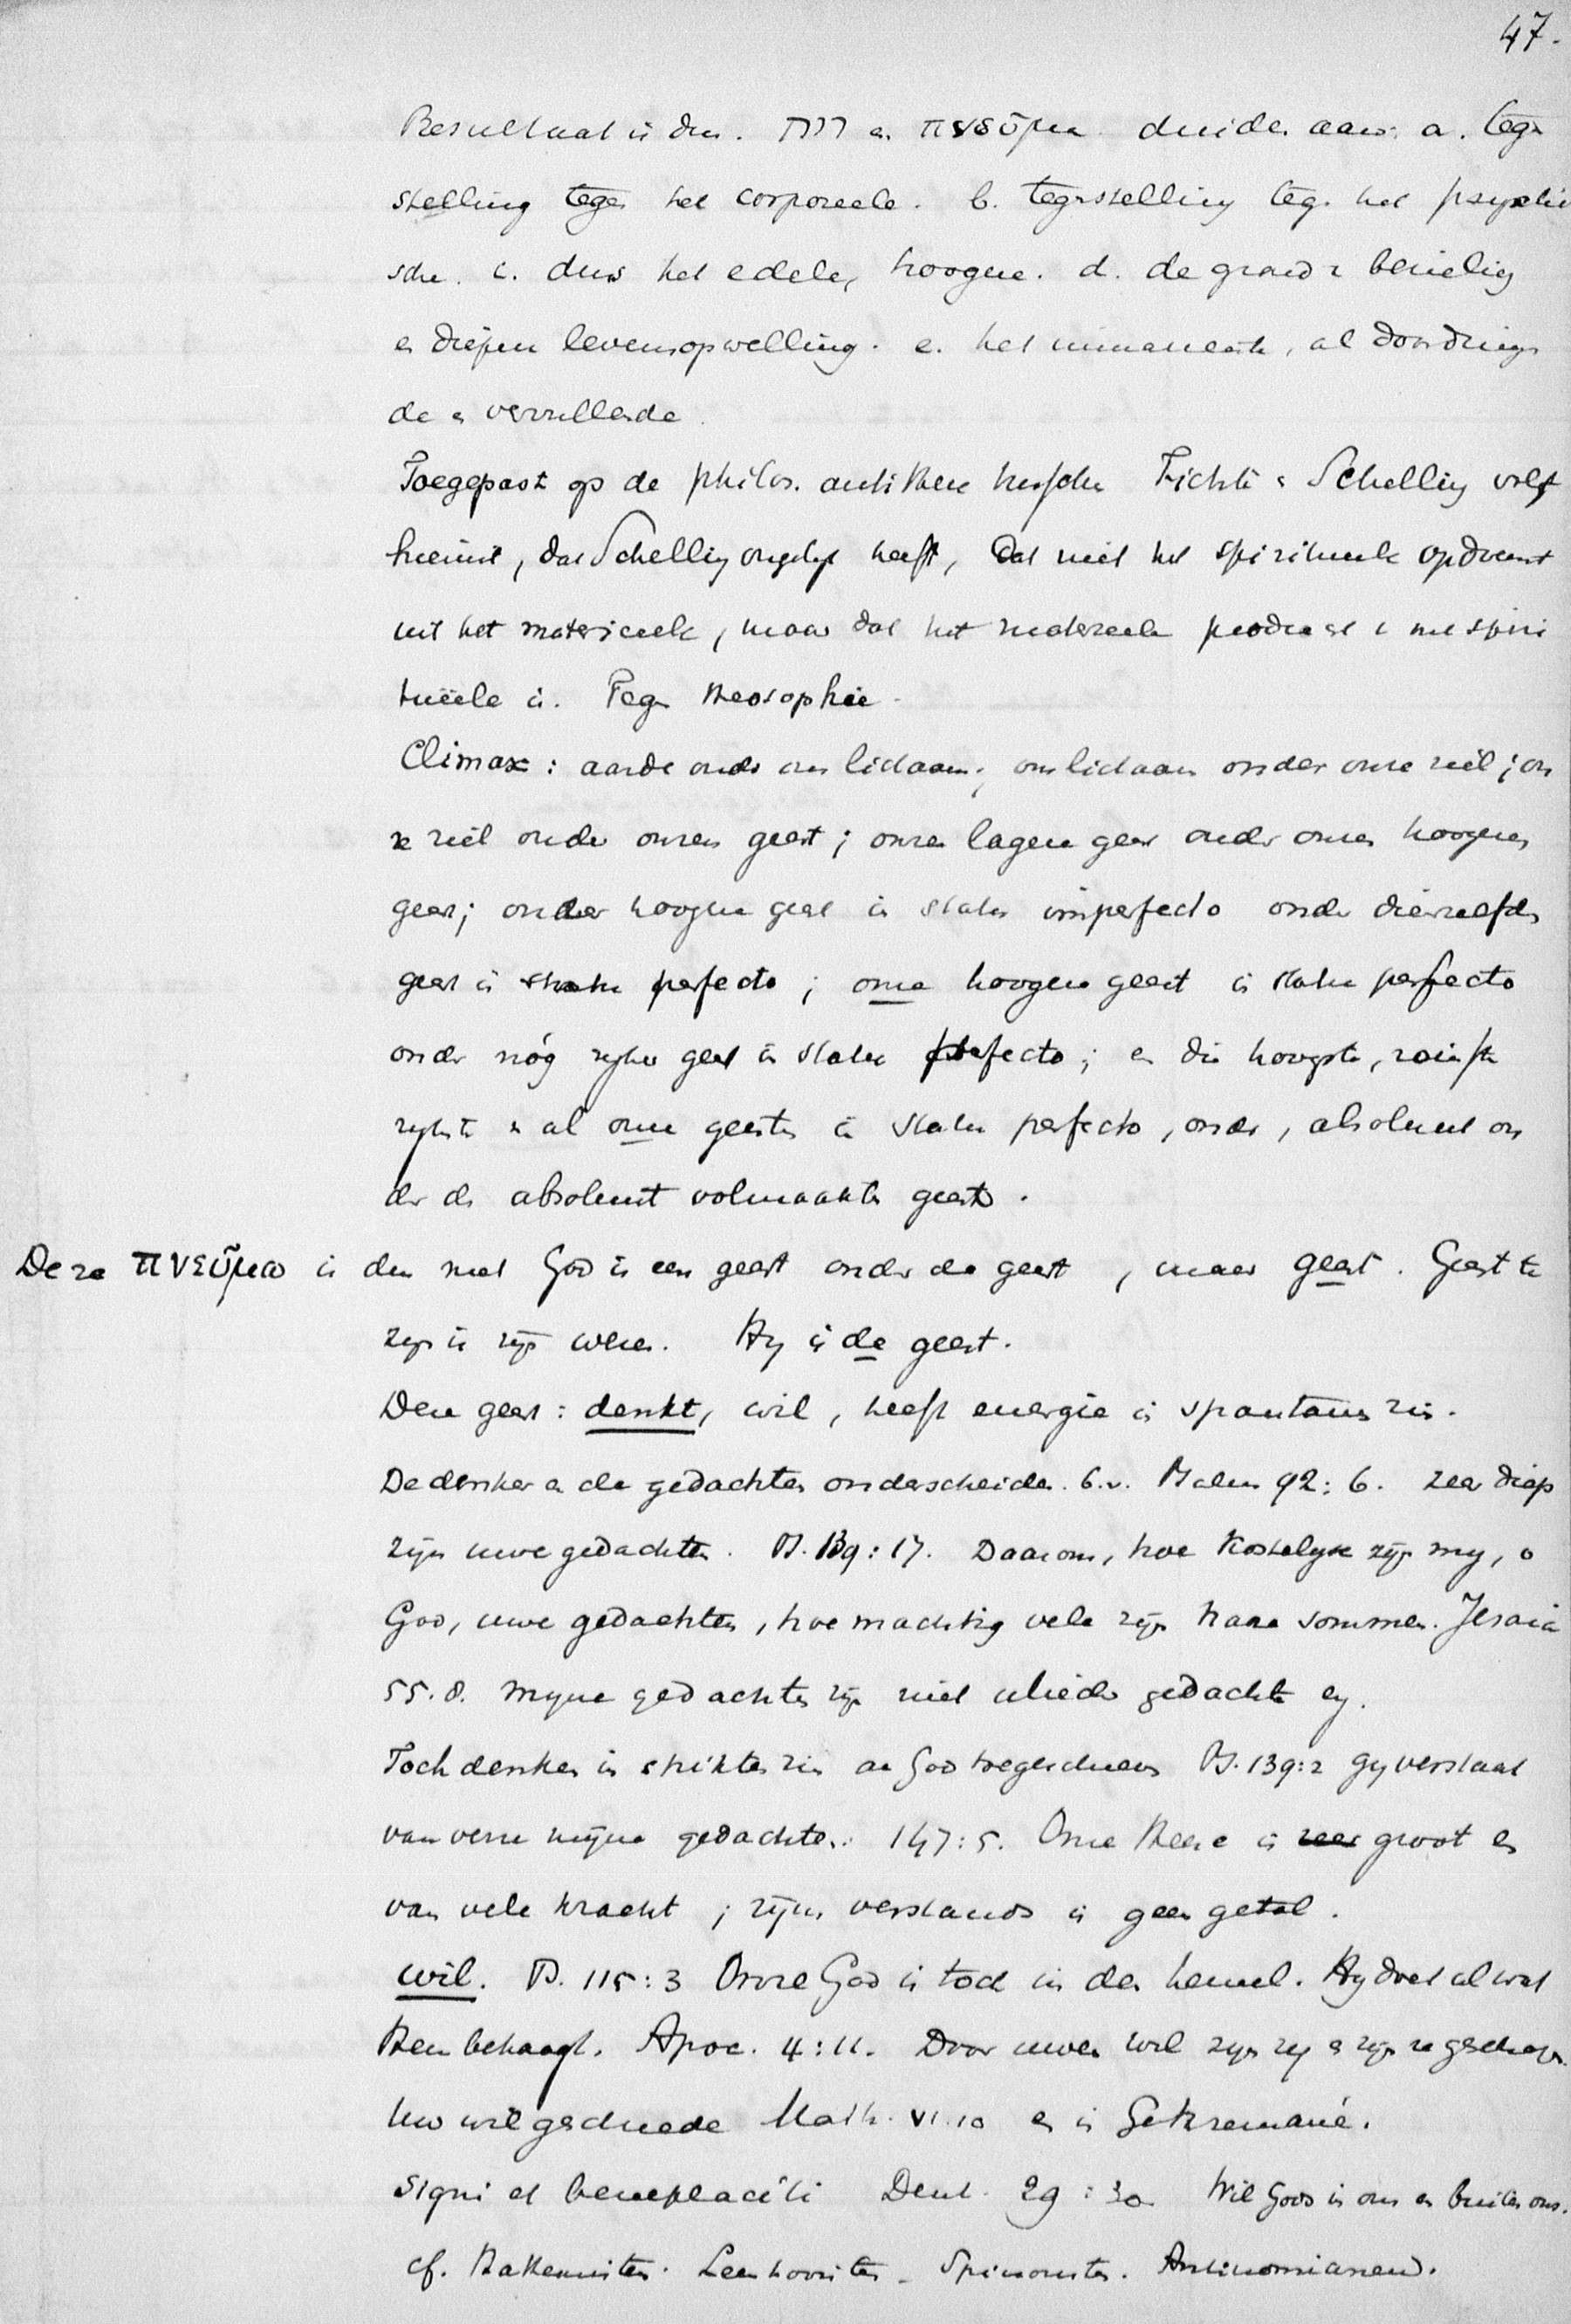 47.
Resultaat is dus. רוח en πνεῦμα duiden aan: a. tegen
stelling tegen het corporeele. b. tegenstelling teg. het psychi
sche. c. dus het edele, hoogere. d. de grond v bezieling
en diepere levensopwelling. e. het immanente, al doordringen
de en vervullende.
Toegepast op de philos. antithese tusschen Fichte en Schelling volgt
hieruit, dat Schelling ongelyk heeft, dat niet het spiritueele opdoemt
uit het materieele, maar dat het materieele product v het spiri
tueele is. Tegen theosophie.
Climax: aarde onder ons lichaam; ons lichaam onder onze ziel; on
ze ziel onder onzen geest; onzen lageren geest onder onzen hoogeren
geest; onder hoogeren geest in statu imperfecto onder diezelfden
geest in statu perfecto; onze hoogere geest in statu perfecto
onder nóg ryker geest in statu perfecto; en die hoogste, reinste
rykste v al onze geesten in statu perfecto, onder, absoluut on
der de absoluut volmaakte geest.
Deze πνεῦμα is dus niet God is een geest onder de geest, maar geest. Geest te
zyn is zyn wezen. Hy is de geest.
Deze geest: denkt, wil, heeft energie in spontanen zin.
De denker en de gedachten onderscheiden. b.v. Psalm 92:6. zeer diep
zyn uwe gedachten. Ps. 139:17. Daarom, hoe kostelyk zyn my, o
God, uwe gedachten, hoe machtig vele zyn hare sommen. Jesaia
55.8. myne gedachten zyn niet ulieder gedachten en.
Toch denken in strikten zin aan God toegeschreven Ps. 139:2 gy verstaat
van verre myne gedachten. 147:5. Onze Heere is zeer groot en
van vele kracht; zyns verstands is geen getal.
wil. Ps. 115:3 Onze God is toch in den hemel. Hy doet al wat
Hem behaagt. Apoc. 4:11. Door uwen wil zyn zy en zyn ze geschapen.
Uw wil geschiede Matth. VI.10 en in Gethsemané.
Signi et beneplaciti Deut. 29:30 Wil Gods in ons en buiten ons.
cf. Hattemisten. Leenhovisten. Spinozisten. Antinomianen.